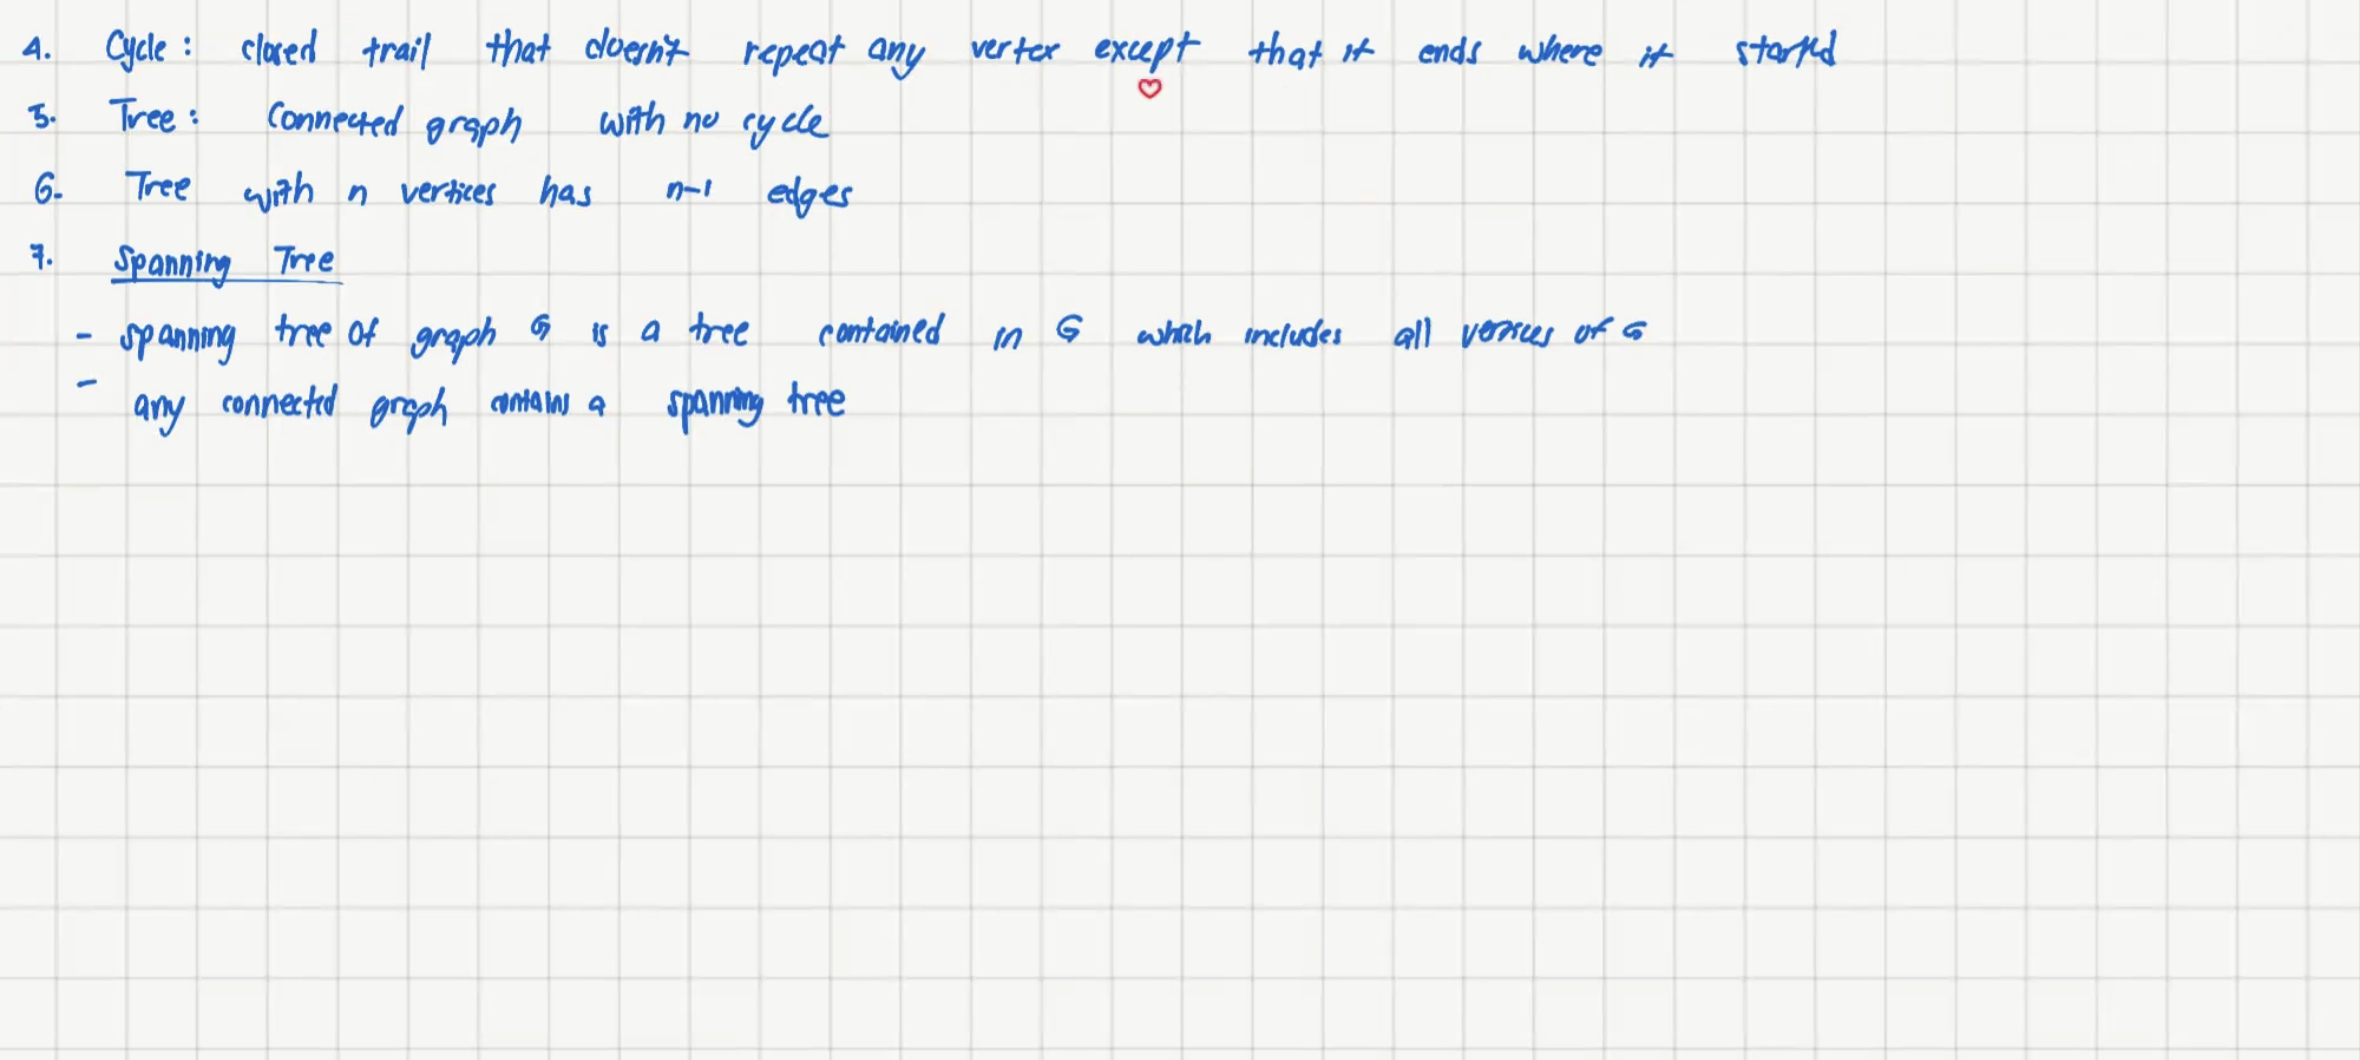 4. Cycle: closed trail that doesn't repeat any vertex except that it ends where it started
5. Tree: Connected graph with no cycle
6. Tree with n vertices has n-1 edges
7. Spanning Tree
- spanning tree of graph G is a tree contained in G which includes all vertices of G
- any connected graph contains a spanning tree